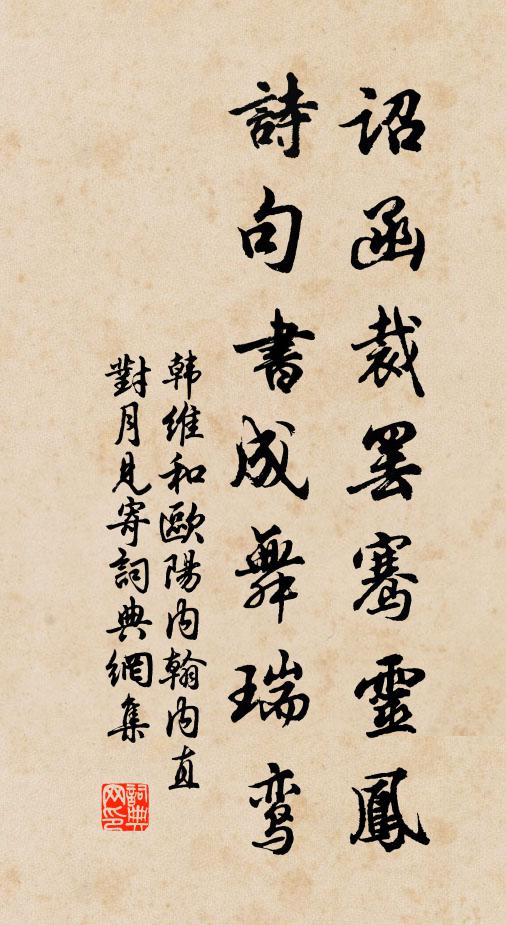 诏函裁罢骞靈鳳
詩句書成舞瑞鸾
韩维和歐陽内翰内直
對月見寄詞典網集
詞典
网印